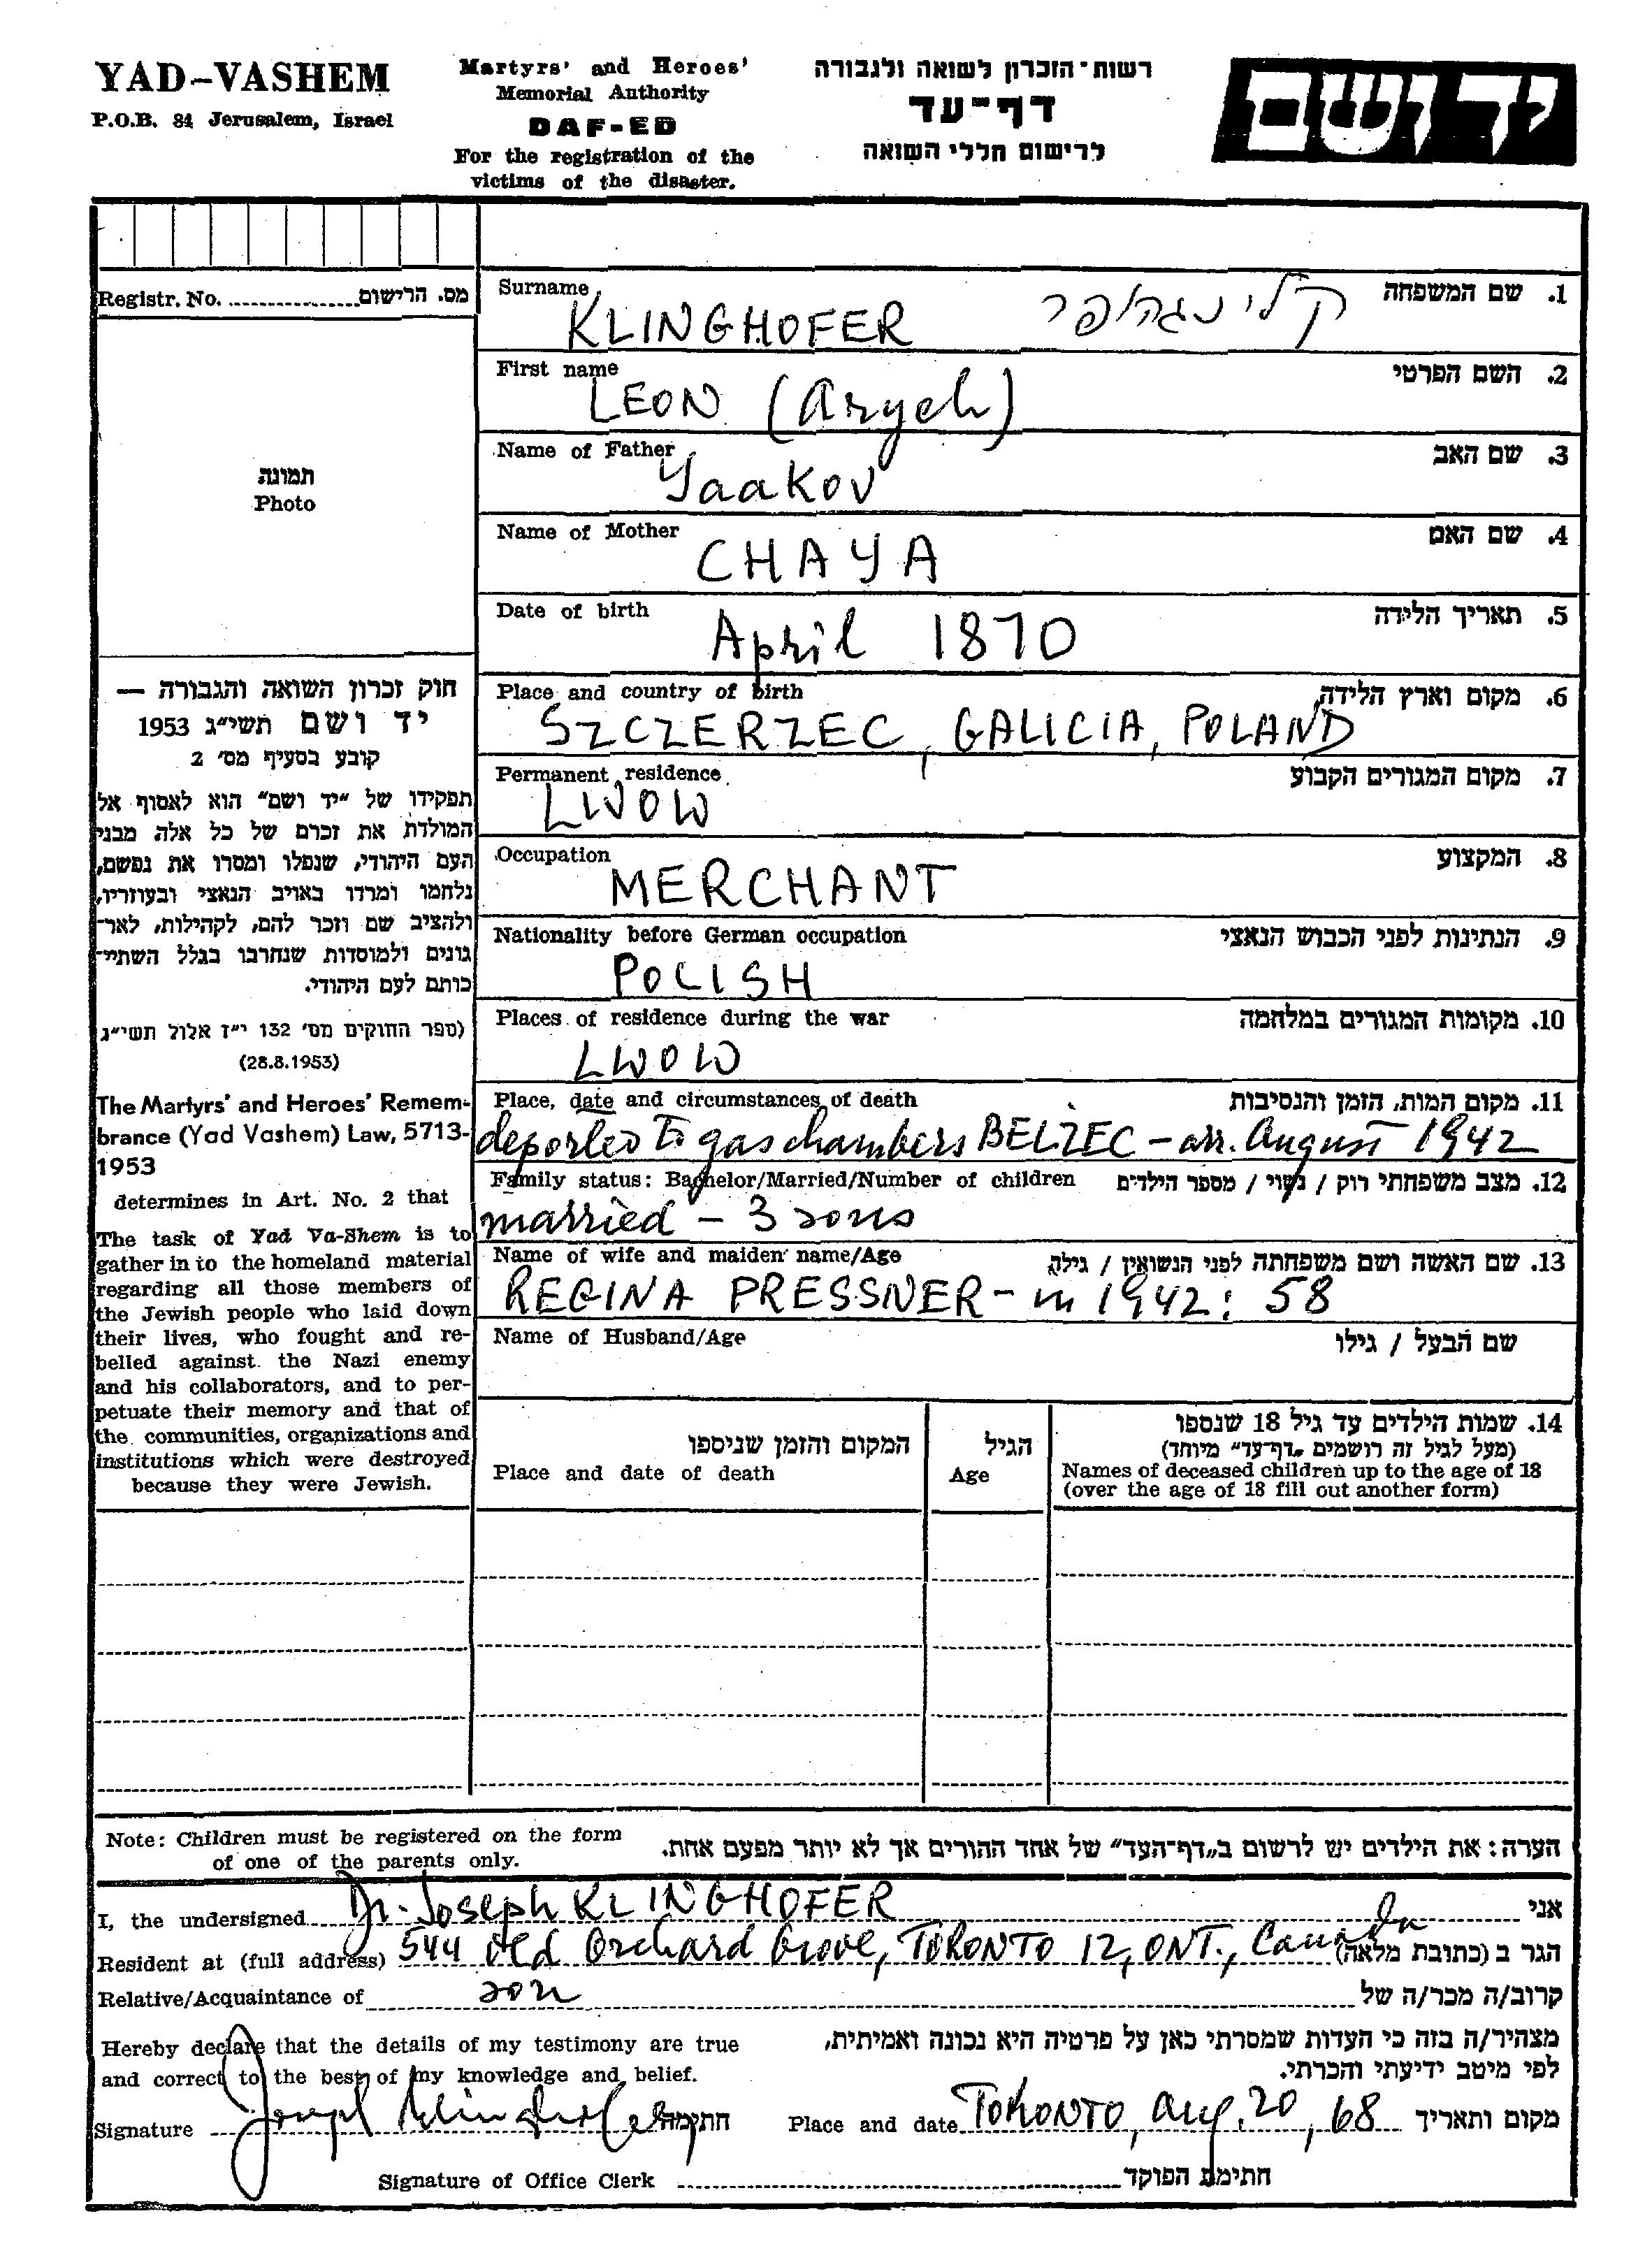 YAD-VASHEM
P.O.B. 84 Jerusalem, Israel
Martyrs' and Heroes'
Memorial Authority
DAF-ED
For the registration of the
victims of the disaster.
רשות-הזכרון לשואה ולגבורה
דף-עד
לרישום חללי השואה
יד ושם
Registr. No. מס. הרישום
תמונה
Photo
חוק זכרון השואה והגבורה —
יד ושם תשי"ג 1953
קובע בסעיף מס' 2
תפקידו של "יד ושם" הוא לאסוף אל
המולדת את זכרם של כל אלה מבני
העם היהודי, שנפלו ומסרו את נפשם,
נלחמו ומרדו באויב הנאצי ובעוזריו,
ולהציב שם וזכר להם, לקהילות, לאר-
גונים ולמוסדות שנחרבו בגלל השתיי-
כותם לעם היהודי.
(ספר החוקים מס' 132 י"ז אלול תשי"ג
(28.8.1953)
The Martyrs' and Heroes' Remem-
brance (Yad Vashem) Law, 5713-
1953
determines in Art. No. 2 that
The task of Yad Va-Shem is to
gather in to the homeland material
regarding all those members of
the Jewish people who laid down
their lives, who fought and re-
belled against the Nazi enemy
and his collaborators, and to per-
petuate their memory and that of
the communities, organizations and
institutions which were destroyed
because they were Jewish.
Surname 1. שם המשפחה
KLINGHOFER קלינגהופר
First name 2. השם הפרטי
LEON (Aryeh)
Name of Father 3. שם האב
Yaakov
Name of Mother 4. שם האם
CHAYA
Date of birth 5. תאריך הלידה
April 1870
Place and country of birth 6. מקום וארץ הלידה
SZCZERZEC, GALICIA, POLAND
Permanent residence 7. מקום המגורים הקבוע
LWOW
Occupation 8. המקצוע
MERCHANT
Nationality before German occupation 9. הנתינות לפני הכבוש הנאצי
POLISH
Places of residence during the war 10. מקומות המגורים במלחמה
LWOW
Place, date and circumstances of death 11. מקום המות, הזמן והנסיבות
deported to gas chambers BELZEC – arr. August 1942
Family status: Bachelor/Married/Number of children 12. מצב משפחתי רוק / נשוי / מספר הילדים
married – 3 sons
Name of wife and maiden name/Age 13. שם האשה ושם משפחתה לפני הנשואין / גילה
REGINA PRESSNER – in 1942: 58
Name of Husband/Age שם הבעל / גילו
המקום והזמן שניספו
Place and date of death
הגיל
Age
14. שמות הילדים עד גיל 18 שנספו
(מעל לגיל זה רושמים "דף-עד" מיוחד)
Names of deceased children up to the age of 18
(over the age of 18 fill out another form)
Note: Children must be registered on the form
of one of the parents only.
הערה: את הילדים יש לרשום ב"דף-העד" של אחד ההורים אך לא יותר מפעם אחת.
I, the undersigned Dr. Joseph KLINGHOFER אני
Resident at (full address) 544 Old Orchard Grove, TORONTO 12, ONT., Canada הגר ב (כתובת מלאה)
Relative/Acquaintance of son קרוב/ה מכר/ה של
Hereby declare that the details of my testimony are true
and correct to the best of my knowledge and belief.
מצהיר/ה בזה כי העדות שמסרתי כאן על פרטיה היא נכונה ואמיתית,
לפי מיטב ידיעתי והכרתי.
Signature Joseph Klinghofer חתימה Place and date TORONTO, Aug. 20, 68 מקום ותאריך
Signature of Office Clerk חתימת הפוקד